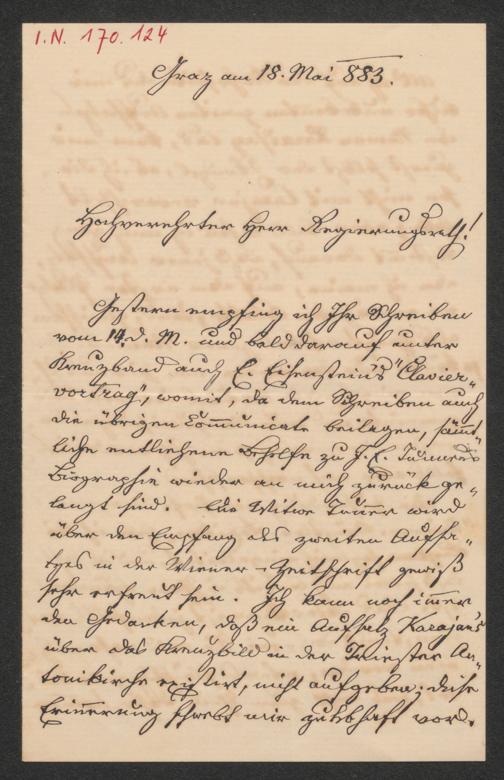 I.N. 170.124
Graz am 18. Mai 883.
Hochverehrter Herr Regierungsrath!
Gestern empfing ich Ihr Schreiben
vom 14. d. M. und bald darauf unter
Kreuzband auch E. Eisenstein's "Clavier-
vortrag", womit, da dem Schreiben auch
die übrigen Communicate beilagen, sämt-
liche entliehene Behelfe zu J. E. Tunner's
Biographie wieder an mich zurück ge-
langt sind. Die Witwe Tunner wird
über den Empfang des zweiten Aufsa-
tzes in der Wiener-Zeitschrift gewiß
sehr erfreut sein. Ich kann noch immer
den Gedanken, daß ein Aufsatz Karajan's
über das Kreuzbild in der Triester An-
tonikirche existirt, nicht aufgeben; diese
Erinnerung schwebt mir zu lebhaft vor.